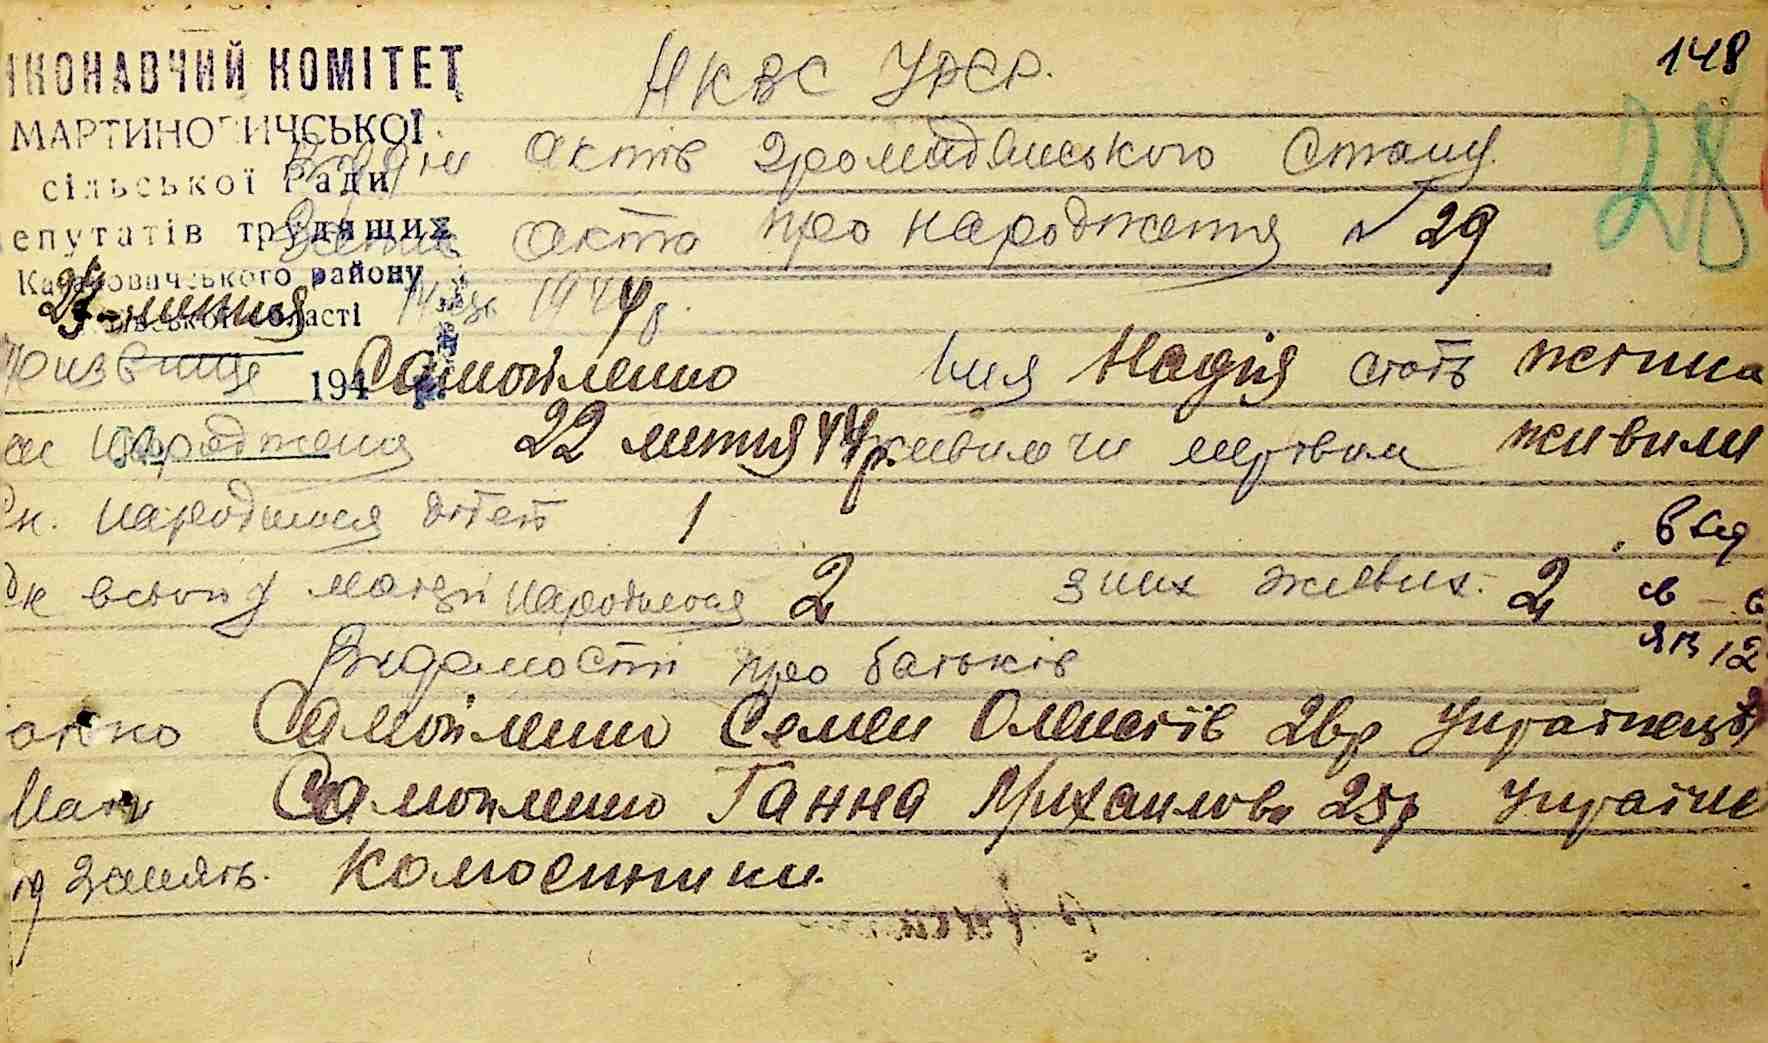 148
28
ІКОНАВЧИЙ КОМІТЕТ
МАРТИНОВИЧСЬКОЇ
сільської Ради
епутатів трудящих
Кагановичського району
ївської області
194
НКВС УРСР.
актів громадянського стану.
акта про народження № 29
лютня 1944 р.
Призвище Самойленко Імя Надія стать жіноча
народження 22 лютня 44р. живими чи мертвим живими
народилося дітей 1
всього у матері народилося 2 з них живих. 2
Відомості про батьків
атько Самойленко Семен Олексіїв 26р Українець
Мати Самойленко Ганна Михайлова 25р Україн
занять. Колгоспники.